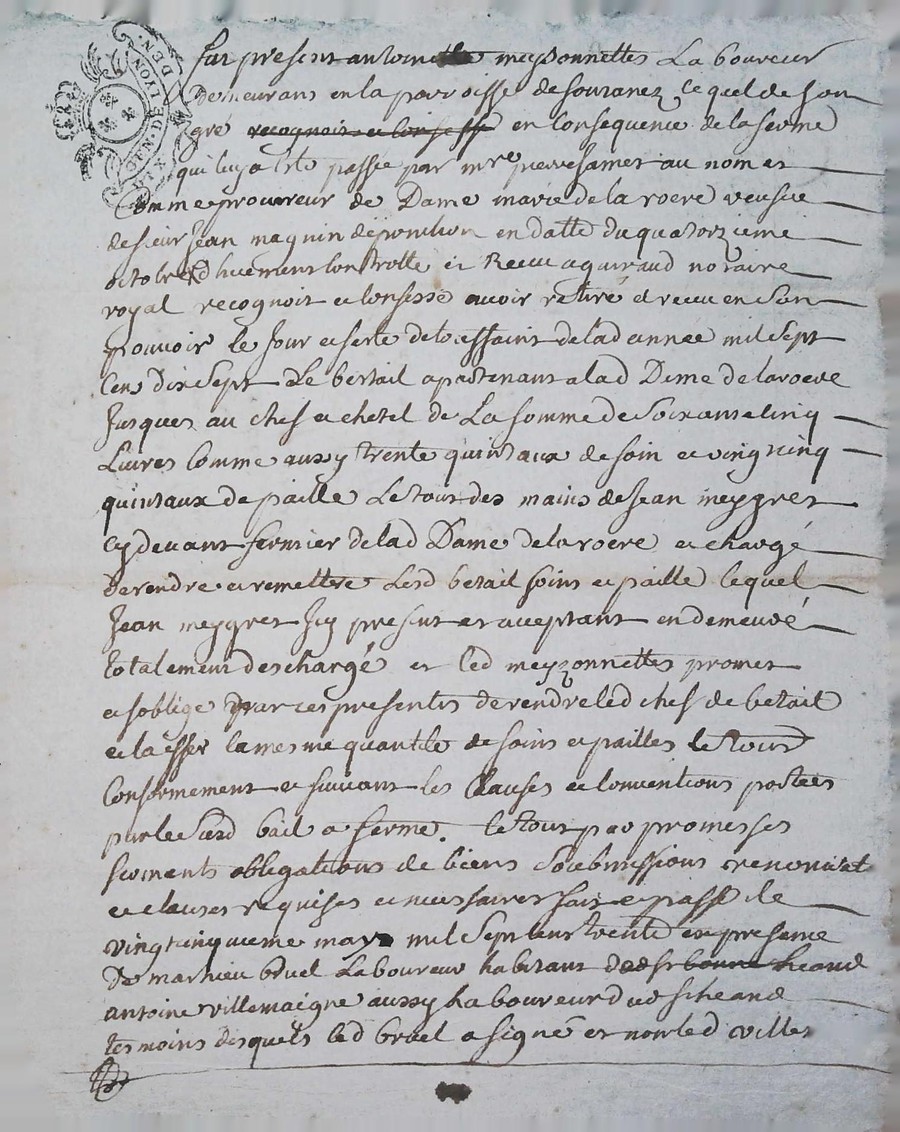 fut present antoine meyzonnettes Laboureur
demeurant en la parroisse de souzanez, lequel de son
gré recognoit et confesse en consequence de la ferme
qui luy a ete passée par mre pierre samet au nom et
comme procureur de Dame marie de la roere veufve
de sieur Jean magnin de ponchon en datte du quatorzieme
octobre d huement controlle et Receu a guiraud notaire
royal recognoit et confesse avoir retiré et receu en son
pouvoir le Jour et feste de toussaint de lad année mil sept
cens dix sept Le bettail apartenant a lad Dame de la roere
Jusques au chef et chetel de La somme de soixante cinq
Livres comme aussy trente quintaux de foin et vingt cinq
quintaux de paille Le tout des mains de Jean meygret
cy devant fermier de lad Dame de la roere et chargé
de rendre et remettre Lesd betail foins et paille lequel
Jean meygret Icy present et acceptant en demeure
totalement deschargé et led meyzonnettes promet
et soblige par ces presentes de rendre led chef de betail
et laisser la mesme quantité de foins et pailles le tout
conformement et suivant les Clauses et conventions portées
par le susd bail a ferme. le tout par promesses
serments obligations de biens soubmissions renonciat
et clauses requises et necessaires fait et passé le
vingt cinquieme may mil sept cens trente en presence
De mathieu bruel Laboureur habitant
antoine villemaigne aussy Laboureur
tesmoins desquels led bruel a signé et non led villes
DEN. DE LYON
DIX